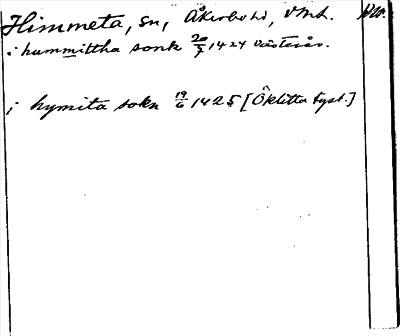 Himmeta, sn, Åkerbo hd, Vml.
i hummittha sonk 20/7 1424 Västerås.
i hymita sokn 19/6 1425 [Öklitta tyst.]